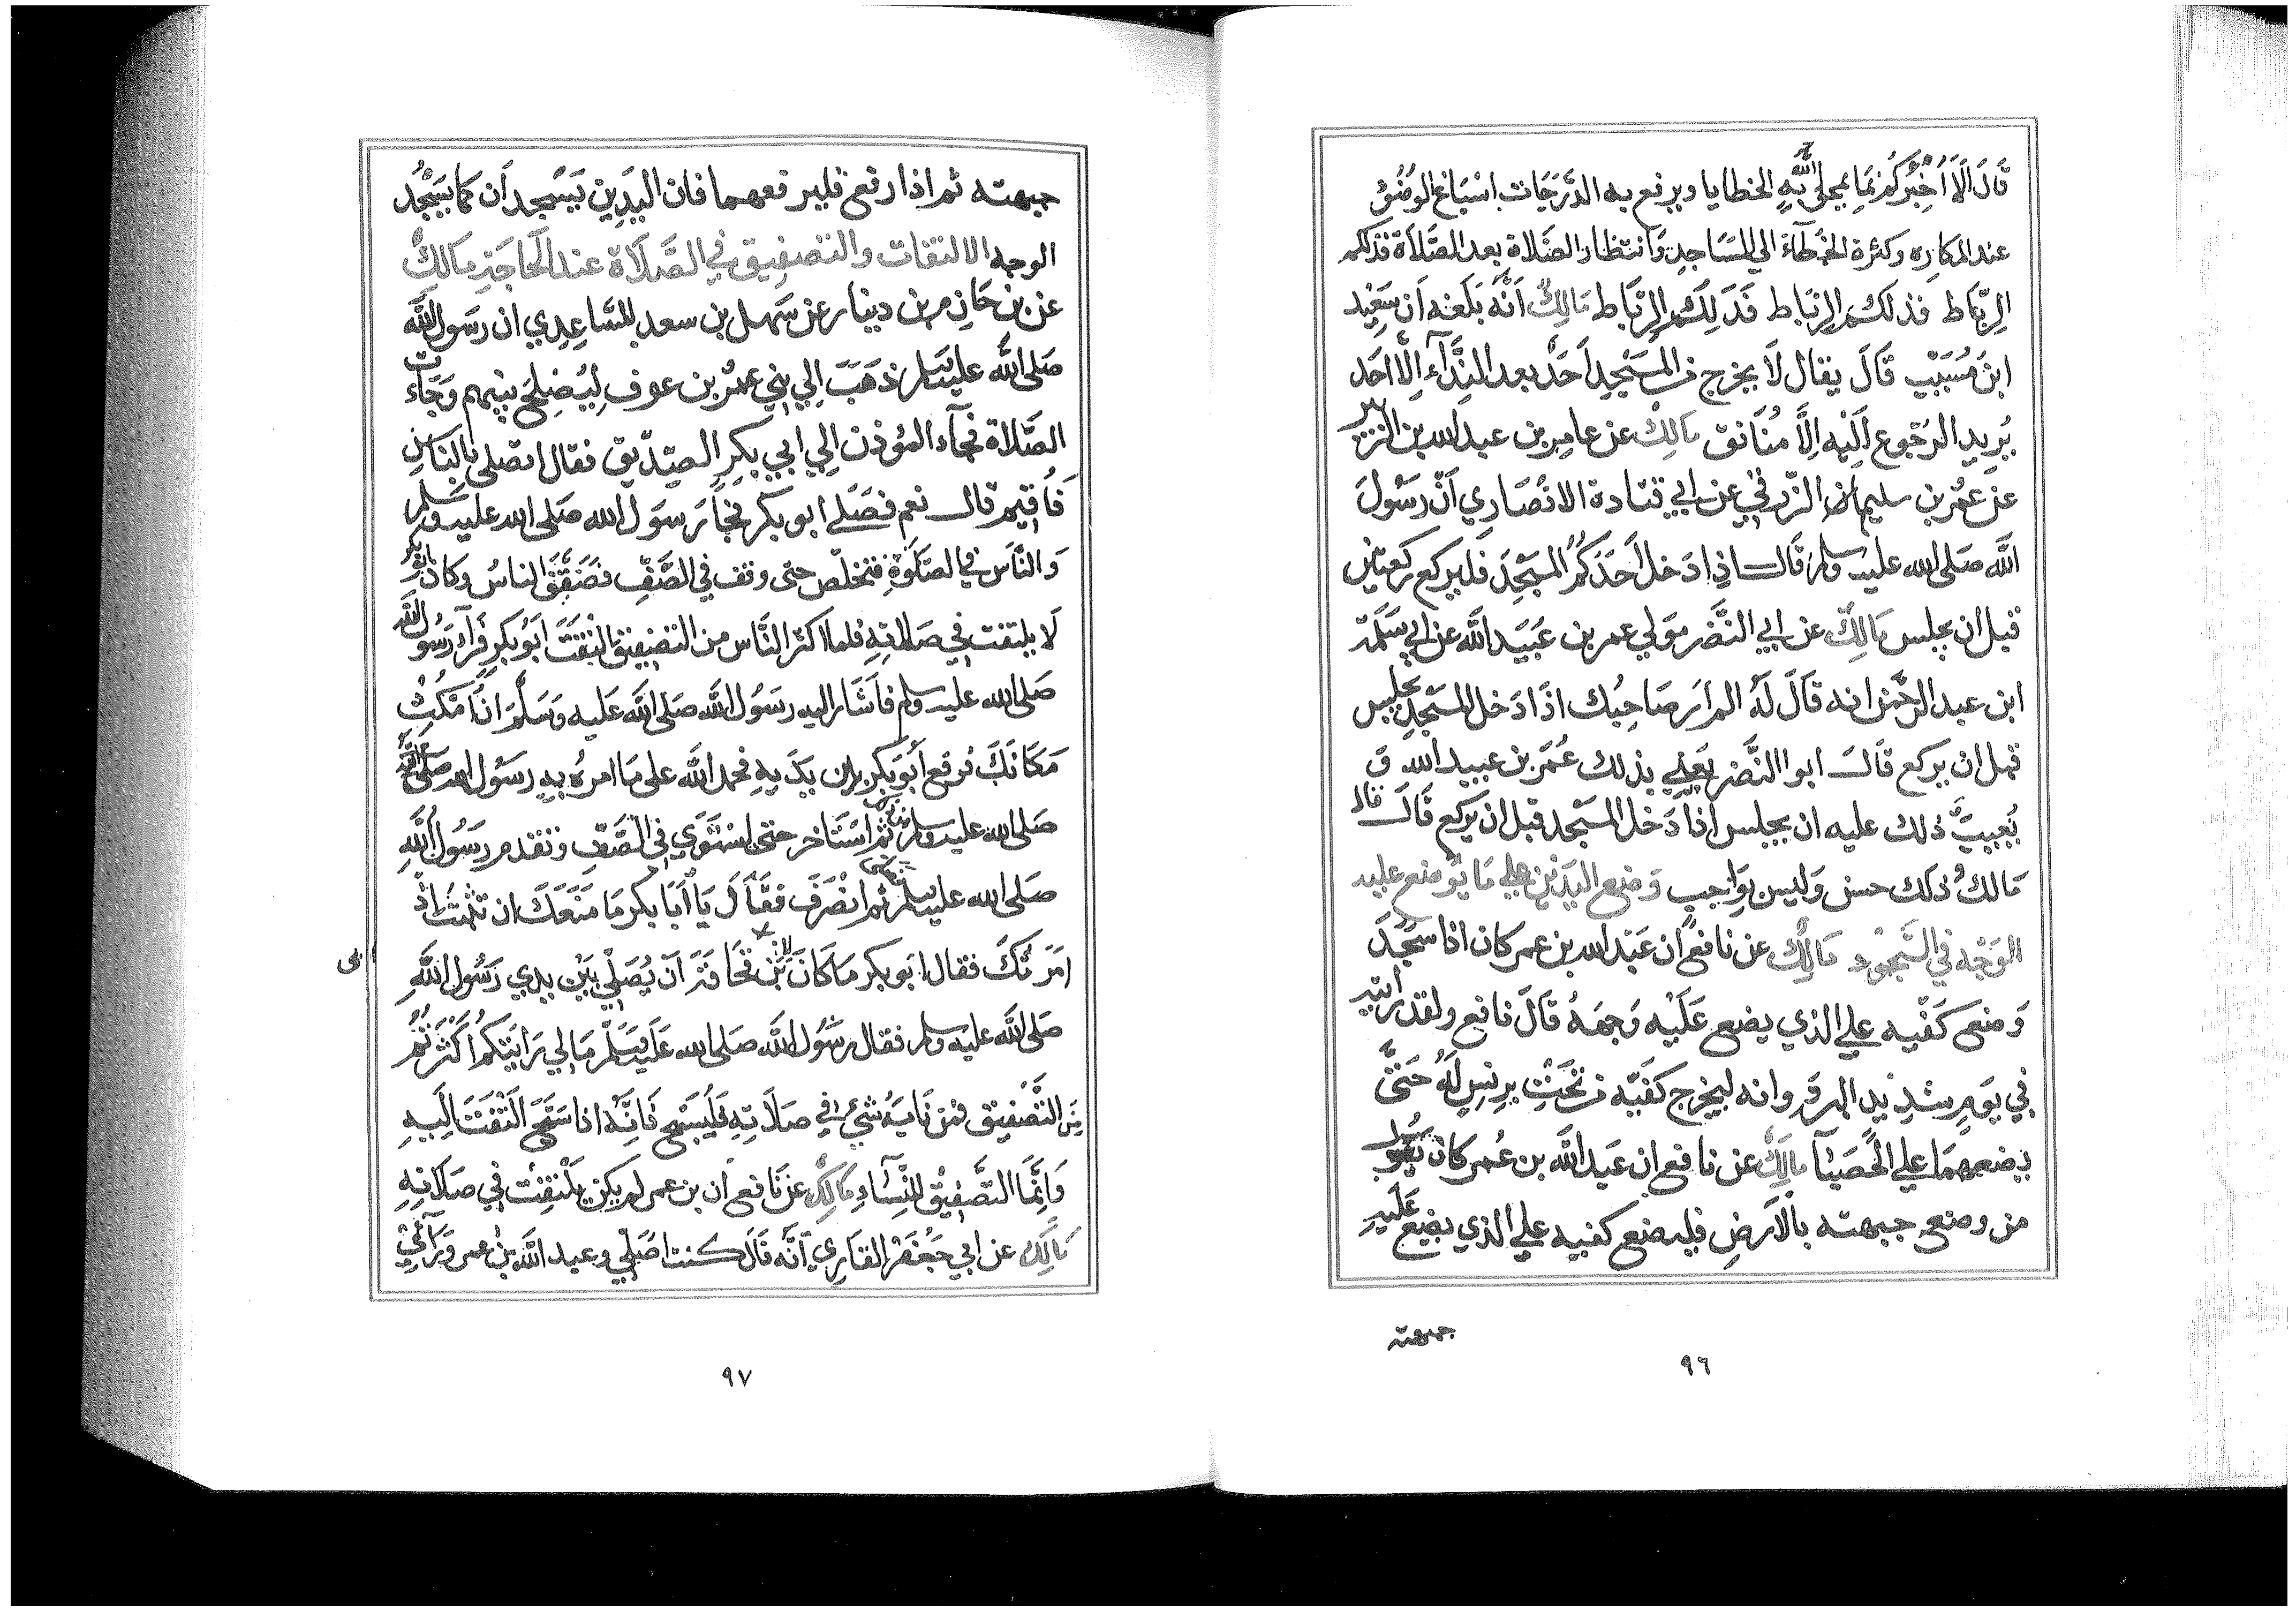 قَالَ اَلَا اُخْبِرُكُمْ بِمَا يمحوا اللَّهُ بِهِ الخطايا ويرفع به الدَّرَجَات اسْبَاغ الوُضُوْ
عند المكاره وكثرة الخُطَآءَ الي المسَاجِدِ وَانتظار الصَّلاة بعد الصَّلَاة فذلكم
الرِّبَاط فذلكم الرِّبَاط فَذَلِكُم الرِّبَاط مَالِكٌ اَنَّهُ بَلَغَه اَن سَعِيد
ابنَ مُسَيّبِ قَالَ يقال لَا يخرج من المَسْجِدِ اَحَدٌ بعد النِّدَآءِ اِلَّا اَحَد
يُرِيد الرُجُوع اِلَيْهِ اِلَّا مُنَافق مَالِكٌ عن عامِر بن عبد الله بن الزبير
عن عَمْرو بن سليم الزُّرَقِي عن ابي قتادة الانْصَارِي اَنَّ رَسُولَ
اللَّه صَلى الله عليه وسلم قَالَ اذِا دَخل اَحَدُكُمُ المَسْجِدَ فليركع رَكعتين
قبل ان يجلس مَالِكٌ عن ابي النَّضْر مَولي عمر بن عُبَيْد اللَّه عن ابي سَلَمَة
ابن عبد الرَّحْمٰن انه قَالَ لَهُ الم اَرَ صَاحِبك اذَا دَخل المسْجِد يجلس
قبل ان يركع قَالَ ابوا النَّضر يَعني بذلك عُمَر بن عبيد الله وَ
يَعِيبُ ذلك عليه ان يجلس اذا دَخل المسْجد قبل ان يركع قَالَ
مَالكٌ وَذلك حسن وَليس بِوَاجِب وَضع اليَدَيْن علي مَا يُوضع عليه
الوَجْه في السُّجُود مَالِكٌ عن نافع ان عَبْد الله بن عمر كان اذا سَجَدَ
وَضع كَفَّيْه علي الذي يضع عَلَيْه وَجهَهُ قَالَ نافع ولقد رايته
في يَومٍ شديد البرد وانه ليخرج كَفَّيه من تَحْتِ برنسٍ لَهُ حَتَّي
يضعهمَا علي الحَصْبَآ مَالِكٌ عن نافع ان عَبد اللَّه بن عُمر كان يَقُول
من وضع جبهته بالْاَرضِ فليضع كفيه علي الذي يضع عَلَيْهِ
جبهته
٩٦
جبهته ثم اذا رفع فليرفعهما فان اليَدَيْنِ يَسْجدَان كمَا يَسْجُدُ
الوجه الالتفات والتصفيق في الصَّلَاة عند الْحَاجَةِ مَالِكٌ
عن بن حَازم بن دينار عن سَهل بن سعد السَّاعِدِي ان رسَول اللَّه
صَلى اللَّه عليه وسلم ذهَبَ اِلي بني عَمْرو بن عوف لِيُصْلِحَ بينهم وَجَاءت
الصَّلاة فجآء المؤذن اِلي ابي بكر الصِدّيق فقال اتصلى بالنَاسِ
فَاُقيم قال نعم فصَلى ابو بكر فجاَ رَسَول الله صَلى الله عليه وسلم
وَالنَّاس في الصَّلٰوة فتخلّص حتى وقف في الصَّفِّ فصَفَّقَ الناسُ وكان ابوبكر
لَا يلتفت في صَلَاتِهِ فلما اكثر النَّاس من التصْفيق التَفَتَ اَبُو بكر فَرَآَ رَسُول اللَّه
صَلى الله عليه وسلم فاَشَار اليه رَسُول اللَّه صَلى اللَّه عَليه وَسَلَّمَ ان امْكُث
مَكَانَكَ فرفع اَبُو بكر يديهِ فحمد اللَّه على مَا امرهُ بهِ رسُول الله
صَلى الله عليه وسلم ثم اسْتَاخر حتى اسْتَوَي في الصَّفّ وتقدم رسَُول اللَّهِ
صَلى الله عليه وسلم ثم انْصَرَفَ فقَالَ يَا اَبَا بكر مَا مَنَعَكَ ان تثبت اذْ
امَرتُكَ فقال ابَو بكر مَا كَانَ لابن قُحَافَة اَن يُصَلِّي بَيْنَ يدي رَسُول اللَّهِ
صَلى اللَّه عليه وسلم فقال رَسُول اللَّه صَلى الله عَلَيْه وَسَلَّم مَا لي رَايتكُم اَكْثَرتُم
مِنَ التَّصْفيق مَنْ نَابَهُ شَيْءٌ في صَلَاتِهِ فَلْيُسَبّح فَانِّه اذا سَبَّح الْتُفِتَ اِلَيهِ
وَانَّمَا التَّصفيْق للنِّسَاءِ مَالِكٌ عن نَافع اَن بن عمر لم يكن يَلْتفِت في صَلَاتهِ
مَالِكٌ عن ابي جَعْفَر القارِي اَنَّه قَالَ كنت اصَلي وعبد اللَّه بن عمر وَرَآئي
٩٧